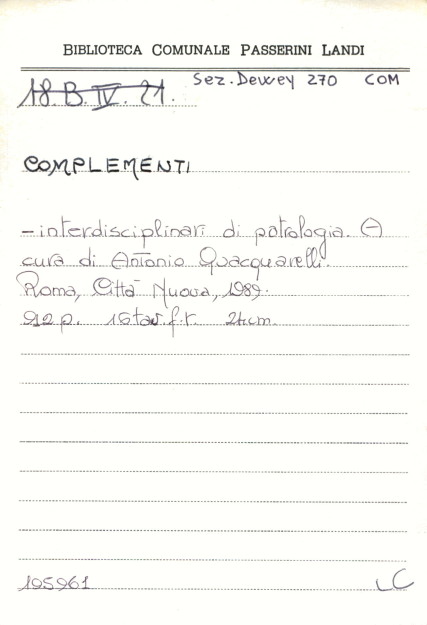 BIBLIOTECA COMUNALE PASSERINI LANDI
Sez. Dewey 270 COM
18.B.IV.21.
COMPLEMENTI
- interdisciplinari di patrologia. A
cura di Antonio Quacquarelli.
Roma, Città Nuova, 1989.
912 p. 16 tav. f.t. 24 cm.
105961